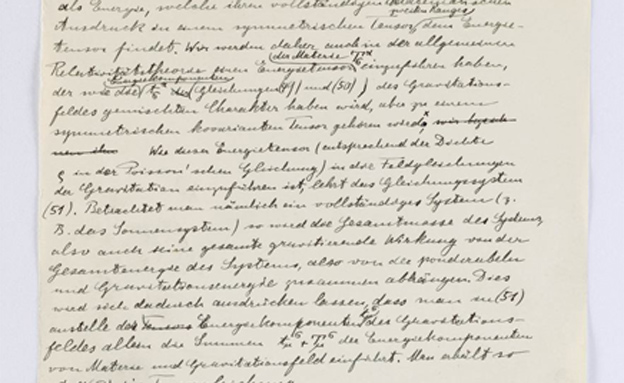 als Energie, welche ihren vollständigen
zweiten Ranges
Ausdruck in einem symmetrischen Tensor, dem Energie-
tensor findet. Wir werden daher auch in der allgemeinen
der Materie T_σ^α
Relativitätstheorie einen Energietensor einzuführen haben,
Energiekomponenten
der wie die t_σ^α (Gleichungen 49) und (50)) des Gravitations-
feldes gemischten Charakter haben wird, aber zu einem
symmetrischen kovarianten Tensor gehören wird, wir
Wie dieser Energietensor (entsprechend der Dichte
ρ in der Poisson'schen Gleichung) in die Feldgleichungen
der Gravitation einzuführen ist, lehrt das Gleichungssystem
(51). Betrachtet man nämlich ein vollständiges System (z.
B. das Sonnensystem) so wird die Gesamtmasse des Systems,
also auch seine gesamte gravitierende Wirkung von der
Gesamtenergie des Systems, also von der ponderabeln
und Gravitationsenergie zusammen abhängen. Dies
wird sich dadurch ausdrücken lassen, dass man in (51)
anstelle der Energiekomponenten t_μ^σ des Gravitations-
feldes allein die Summen t_μ^σ + T_μ^σ der Energiekomponenten
von Materie und Gravitationsfeld einführt. Man erhält so